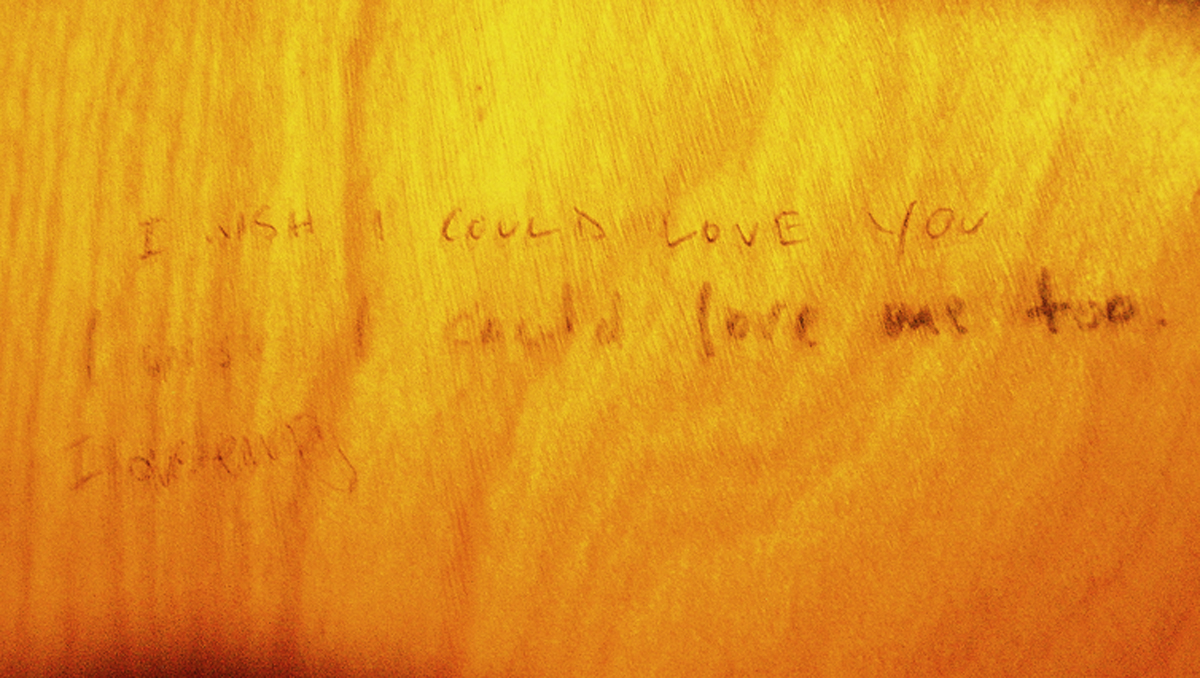 I WISH I COULD LOVE YOU
I wish I could love me too.
I